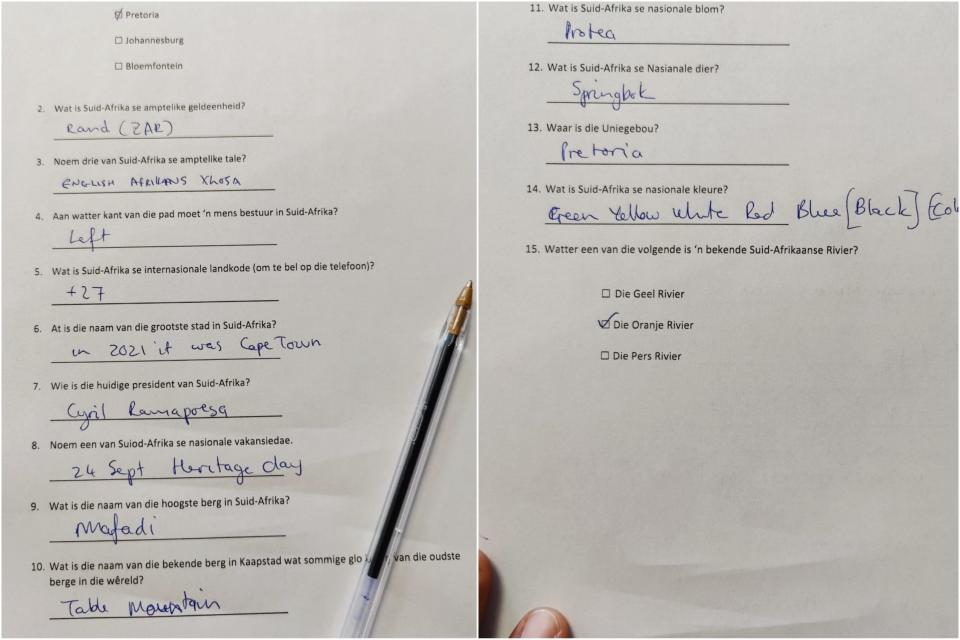 Pretoria
Johannesburg
Bloemfontein
2. Wat is Suid-Afrika se amptelike geldeenheid?
Rand (ZAR)
3. Noem drie van Suid-Afrika se amptelike tale?
ENGLISH AFRIKANS XHOSA
4. Aan watter kant van die pad moet 'n mens bestuur in Suid-Afrika?
Left
5. Wat is Suid-Afrika se internasionale landkode (om te bel op die telefoon)?
+27
6. At is die naam van die grootste stad in Suid-Afrika?
in 2021 it was Cape Town
7. Wie is die huidige president van Suid-Afrika?
Cyril Ramapoesa
8. Noem een van Suiod-Afrika se nasionale vakansiedae.
24 Sept Heritage day
9. Wat is die naam van die hoogste berg in Suid-Afrika?
Mafadi
10. Wat is die naam van die bekende berg in Kaapstad wat sommige glo van die oudste
berge in die wêreld?
Table Mountain
11. Wat is Suid-Afrika se nasionale blom?
Protea
12. Wat is Suid-Afrika se Nasianale dier?
Springbok
13. Waar is die Uniegebou?
Pretoria
14. Wat is Suid-Afrika se nasionale kleure?
Green Yellow White Red Blue [Black]
15. Watter een van die volgende is 'n bekende Suid-Afrikaanse Rivier?
Die Geel Rivier
Die Oranje Rivier
Die Pers Rivier